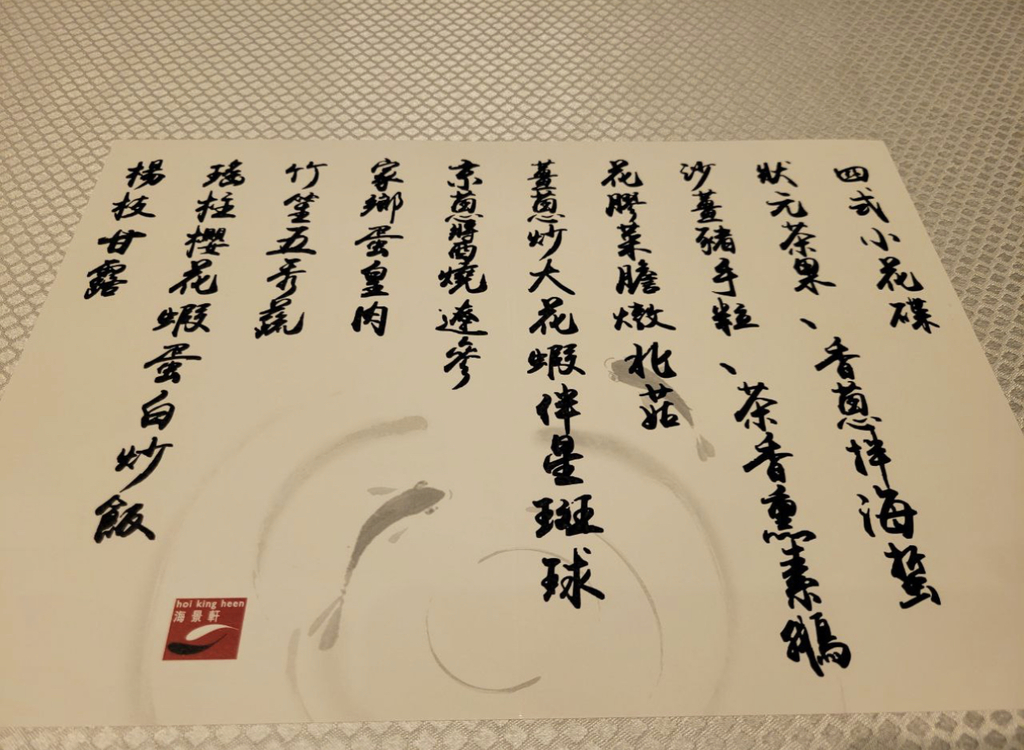 四式小花碟
狀元茶果、香蔥拌海蜇
沙薑豬手粒、茶香熏素鵝
花膠菜膽燉北菇
薑蔥炒大花蝦伴星斑球
京蔥醬燒遼參
家鄉蛋皇肉
竹笙五秀蔬
瑤柱櫻花蝦蛋白炒飯
楊枝甘露
hoi king heen
海景軒